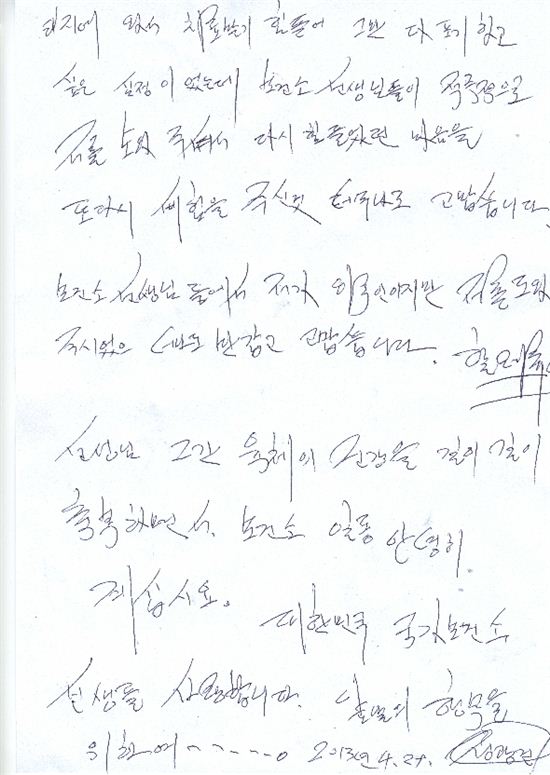 타지에 와서 치료받기 힘들어 그만 다 포기하고
싶은 실정이였는데 보건소 선생님들이 적극적으로
저를 도와 주셔서 다시 힘들었던 마음을
또다시 새힘을 주신것 너무나도 고맙습니다.
보건소 선생님들에서 저가 외국인이지만 저를 도와
주시였으 너무도 반갑고 고맙습니다.
선생님 그간 육체의 건강을 길이 길이
축복하면서. 보건소 일동 안녕히
계십시요.
대한민국 국가보건소
선생들 사랑합니다. 날의 행복을
위하여 ~ ~ - - - - 。 2013년 4. 29.